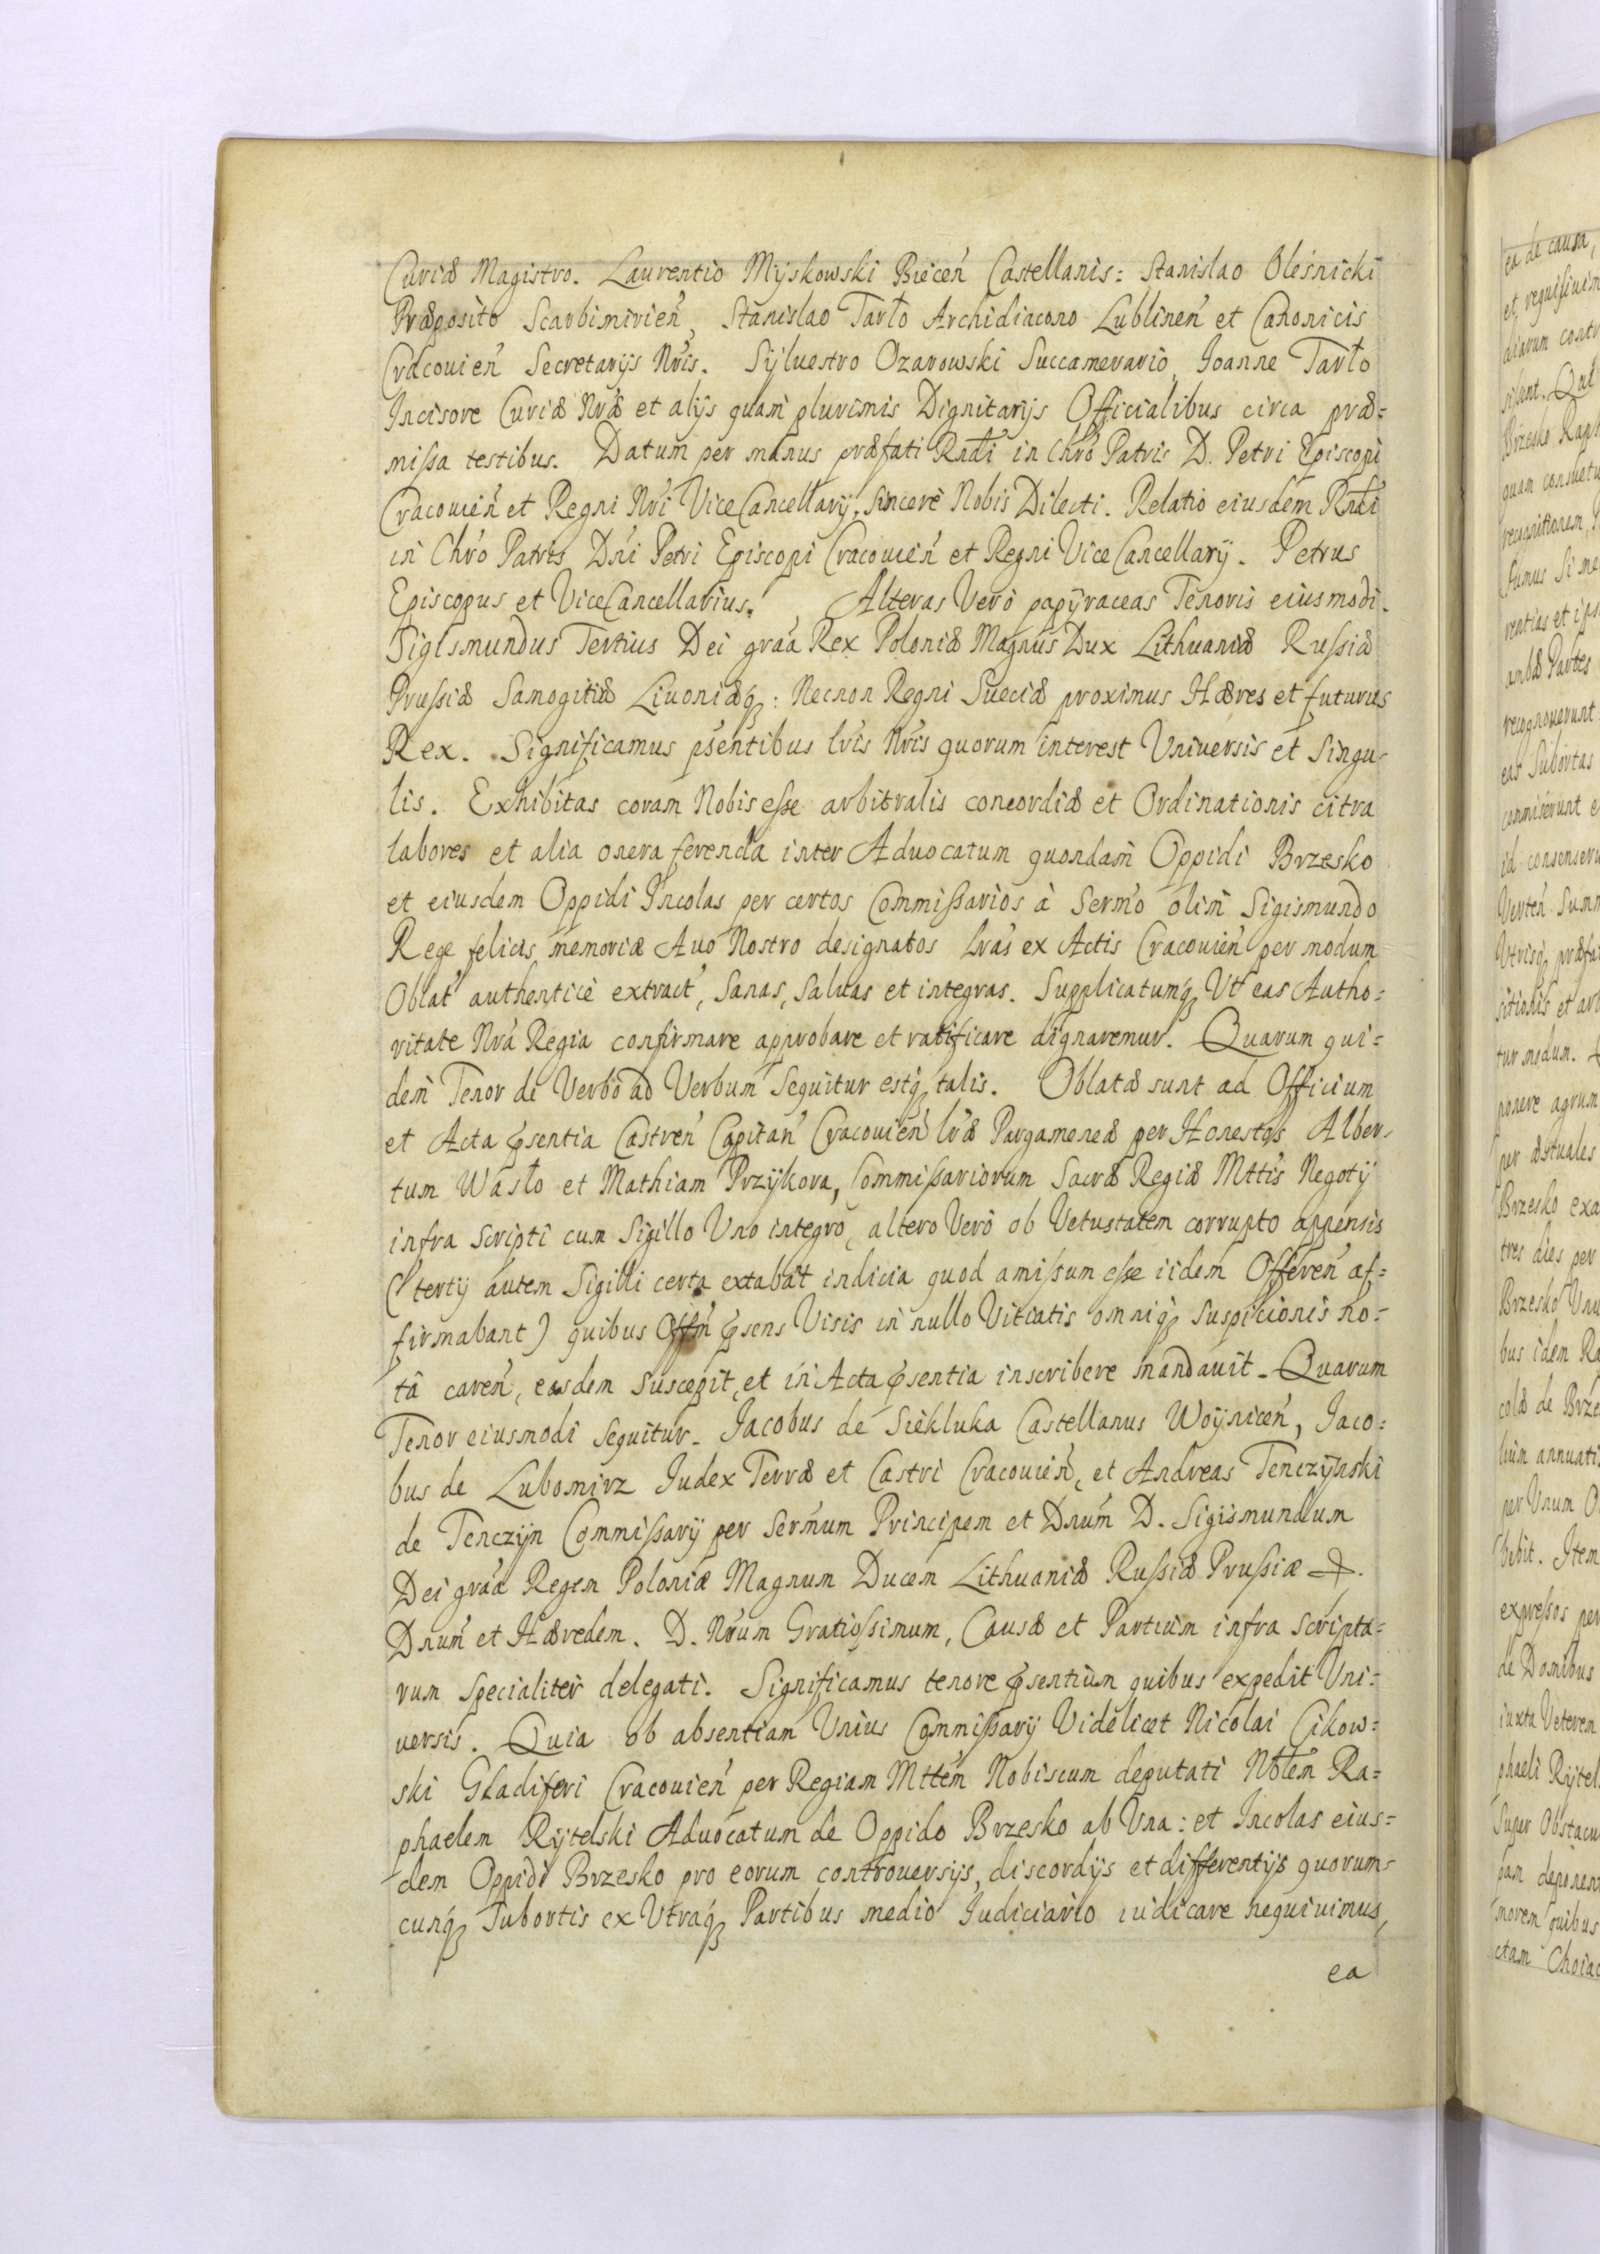 Curiæ Magistro. Laurentio Myskowski Biecen̄ Castellanis: Stanislao Olesnicki
Præposito Scarbimirien̄, Stanislao Tarło Archidiacono Lublinen̄ et Canonicis
Cracouien̄ Secretarijs Nr̄is. Syluestro Ozarowski Succamerario, Joanne Tarło
Incisore Curiæ Nr̄æ et alijs quam plurimis Dignitarijs Officialibus circa præ=
missa testibus. Datum per manus præfati Rn̄di in Chr̄o Patris D. Petri Episcopi
Cracouien̄ et Regni Nr̄i ViceCancellarij, Sincerè Nobis Dilecti. Relatio eiusdem Rn̄di
in Chr̄o Patris Dn̄i Petri Episcopi Cracouien̄ et Regni ViceCancellarij. Petrus
Episcopus et ViceCancellarius. Alteras Verò papyraceas Tenoris eiusmodi.
Sigismundus Tertius Dei gr̄aa Rex Poloniæ Magnus Dux Lithuaniæ Russiæ
Prussiæ Samogitiæ Liuoniæq: Necnon Regni Sueciæ proximus Hæres et futurus
Rex. Significamus p̄sentibus lr̄is Nr̄is quorum interest Vniuersis et Singu-
lis. Exhibitas coram Nobis esse arbitralis concordiæ et Ordinationis citra
labores et alia onera ferenda inter Aduocatum quondam Oppidi Brzesko
et eiusdem Oppidi Incolas per certos Commissarios à Serm̄o olim Sigismundo
Rege felicis memoriæ Auo Nostro designatos lr̄as ex Actis Cracouien̄ per modum
Oblat̄ authenticè extract̄, Sanas, Saluas et integras. Supplicatumq Vt eas Autho=
ritate Nr̄a Regia confirmare approbare et ratificare dignaremur. Quarum qui=
dem Tenor de Verbo ad Verbum Sequitur estq talis. Oblatæ sunt ad Officium
et Acta p̄sentia Castren̄ Capitan̄ Cracouien̄ lr̄æ Pargameneæ per Honestos Alber-
tum Wasło et Mathiam Przykora, Commissariorum Sacræ Regiæ Mttis Negotij
infra Scripti cum Sigillo Vno integro, altero Verò ob Vetustatem corrupto appensis
(tertij autem Sigilli certa extabāt indicia quod amissum esse iidem Offeren̄ af=
firmabant) quibus Offm̄ p̄sens Visis in nullo Vitiatis omniq Suspicionis no=
tâ caren̄, easdem Suscepit, et in Acta p̄sentia inscribere mandauit. Quarum
Tenor eiusmodi Sequitur. Jacobus de Siekluka Castellanus Woynicen̄, Jaco=
bus de Lubomirz Judex Terræ et Castri Cracouien̄, et Andreas Tenczynski
de Tenczyn Commissarij per Serm̄um Principem et Dnum̄ D. Sigismundum
Dei gr̄aa Regem Poloniæ Magnum Ducem Lithuaniæ Russiæ Prussiæ &.
Dnum̄ et Hæredem. D. Nr̄um Gratiossimum, Causæ et Partium infra Scripta=
rum Specialiter delegati. Significamus tenore p̄sentium quibus expedit Vni=
uersis. Quia ob absentiam Vnius Commissarij Videlicet Nicolai Cikow=
ski Gladiferi Cracouien̄ per Regiam Mttem̄ Nobiscum deputati Nōlem Ra=
phaelem Rytelski Aduocatum de Oppido Brzesko ab Vna: et Incolas eius=
dem Oppidi Brzesko pro eorum controuersijs, discordijs et differentijs quorum-
cunq Subortis ex Vtraq Partibus medio Judiciario iudicare nequiuimus,
ea